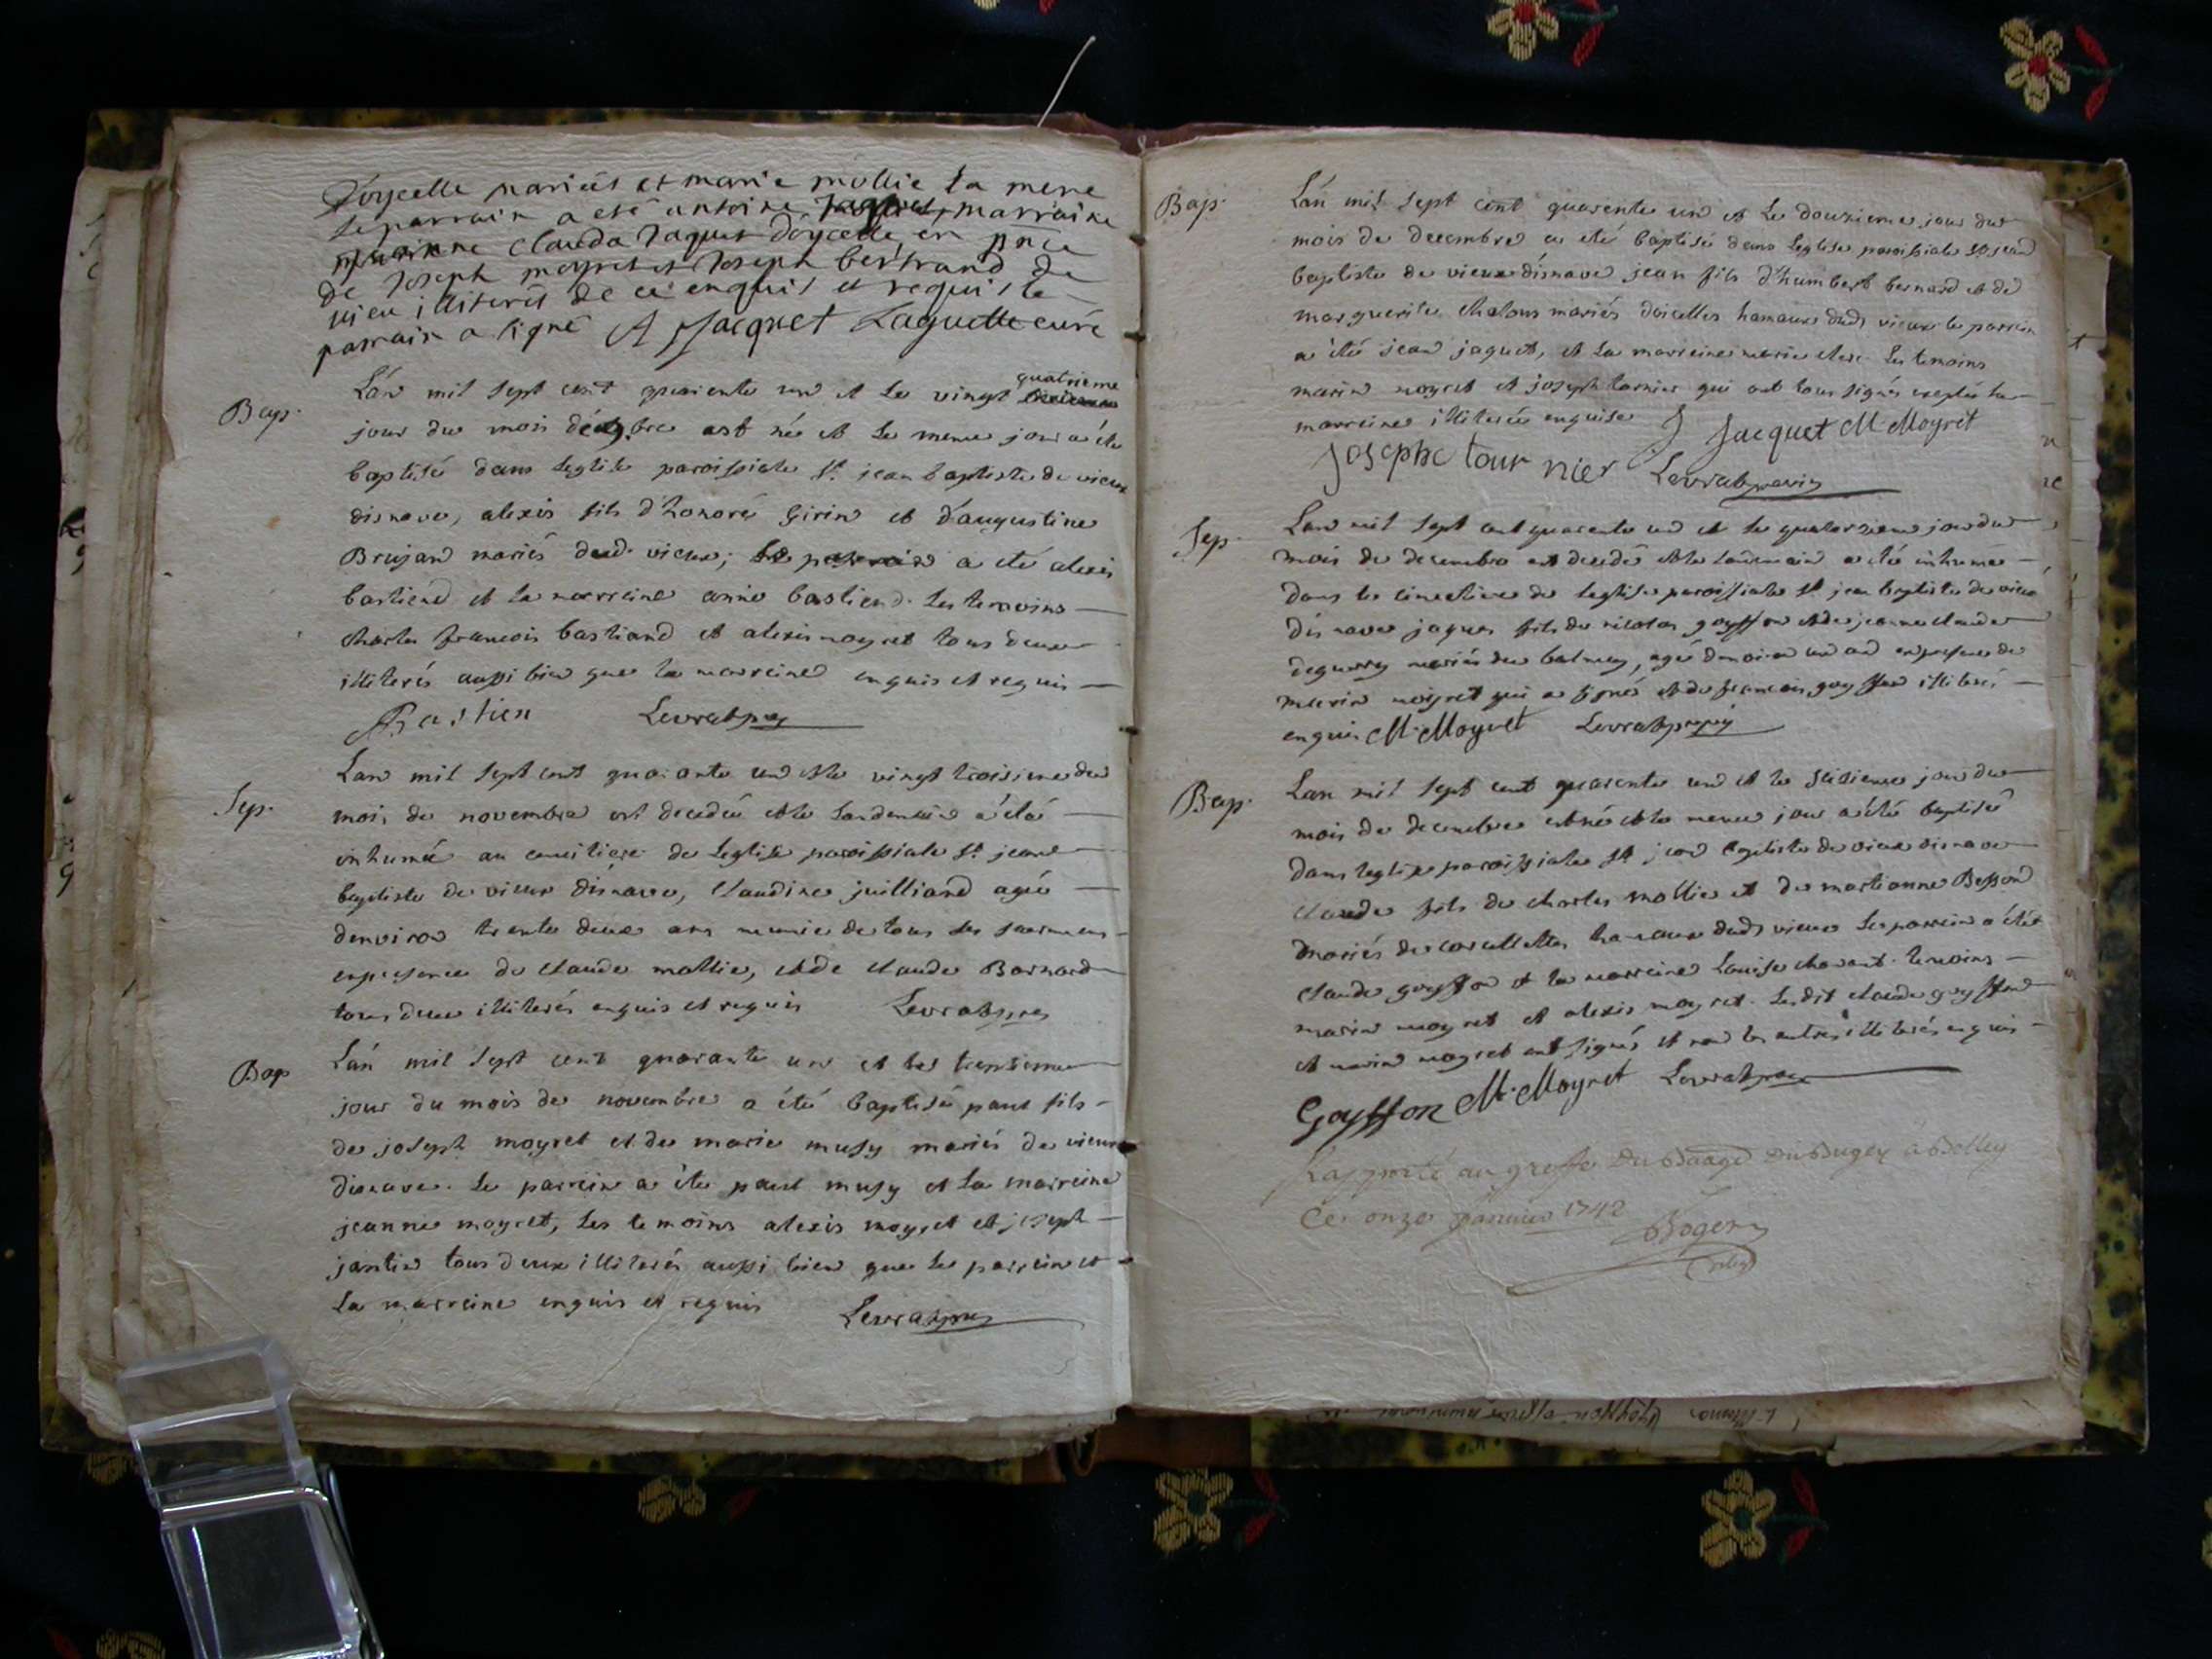 doycelle mariés et marie mollie la mere
le parrain a eté antoine marraine
clauda Jaquet doycelle, en pnce
de Joseph moyret et Joseph bertrand de
vieu illiterés de ce enquis et requis le
parrain a signé A Jacquet Laguette curé
Bap.
Lan mil sept cent quarente un et le vingt quatrieme
jour du mois bre est né et le meme jour a été
baptisé dans leglise paroissiale st. jean baptiste de vieux
disnave, alexis fils d'honoré Girin et d'augustine
Brujan mariés dud. vieux; le parrein a eté alexis
bastiend et la marreine anne bastiend. les temoins
charles francois bastiand et alexis moyret tous deux
illiterés aussi bien que la marreine enquis et requis
Bastien
Sep.
Lan mil sept cent quarante un et le vingt troisieme du
mois de novembre est decedée et le landemain a été
inhumée au cimitiere de leglise paroissiale st. jean
baptiste de vieux disnave, claudine juilliard agée
denviron trente deux ans munie de tous les sacremens
en presence de claude mollie, et de claude Barnard
tous deux illiterés enquis et requis
Bap
Lan mil sept cent quarante un et le trentieme
jour du mois de novembre a été baptisé paul fils
de joseph moyret et de marie musy mariés de vieux
disnave. le parrein a été paul musy et la marreine
jeanne moyret, les temoins alexis moyret et joseph
jantin tous deux illiterés aussi bien que le parrein et
la marreine enquis et requis
Bap.
Lan mil sept cent quarente un et le douzieme jour du
mois de decembre a eté baptisé dans leglise paroissiale st jean
baptiste de vieux disnave jean fils d'humbert bernard et de
marguerite chalons mariés doicelles hameaux dud. vieux le parrein
a été jean jaquet, et la marreine marie clerc les temoins
marin moyret et joseph tornier qui ont tous signés excepté la
marreine illiterée enquise J Jacquet M. Moyret
Josephe tour nier
Sep.
Lan mil sept cent quarente un et le quatorzieme jour du
mois de decembre est decedé et le landemain a été inhumé
dans le cimetiere de leglise paroissiale st jean baptiste de vieux
disnave jaques fils de nicolas goyffon et de jeanne claude
mariés du balmey, agé denviron un an en presence de
marin moyret qui a signé et de francois goyffon illiteré
enquis M. Moyret
Bap.
Lan mil sept cent quarente un et le seizieme jour du
mois de decembre est né et le meme jour a été baptisé
dans leglise paroissiale st jean baptiste de vieux disnave
claude fils de charles mollie et de marianne Besson
mariés de hameaux dud. vieux le parrein a été
claude goyffon et la marreine Louise chavant. temoins
marin moyret et alexis moyret. ledit claude goyffon
et marin moyret ont signés et non les autres illiterés enquis
Goyffon M. Moyret
Rapporté au greffe du Baage du Bugey à Belley
Ce onze janvier 1742
Rogen